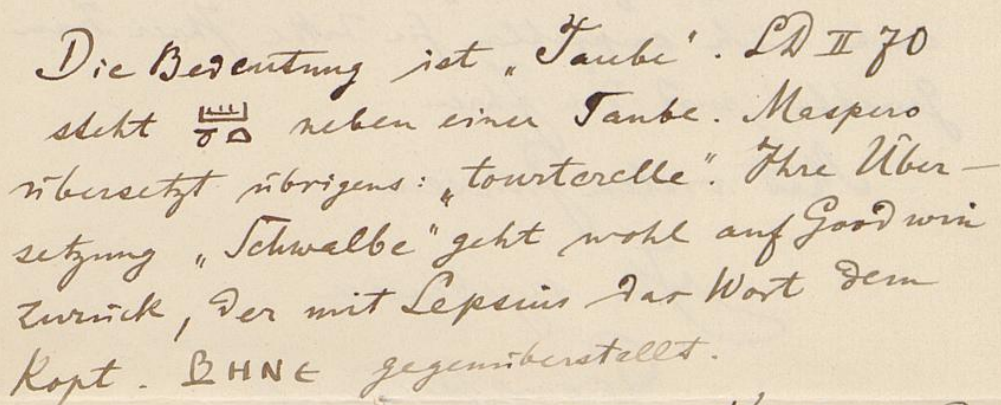 Die Bedeutung ist „Taube“. LD II 70
steht 𓏠𓈖𓏏 neben einer Taube. Maspero
übersetzt übrigens: „tourterelle“. Ihre Über-
setzung „Schwalbe“ geht wohl auf Goodwin
zurück, der mit Lepsius das Wort dem
Kopt. ⲂⲎⲚⲈ gegenüberstellt.